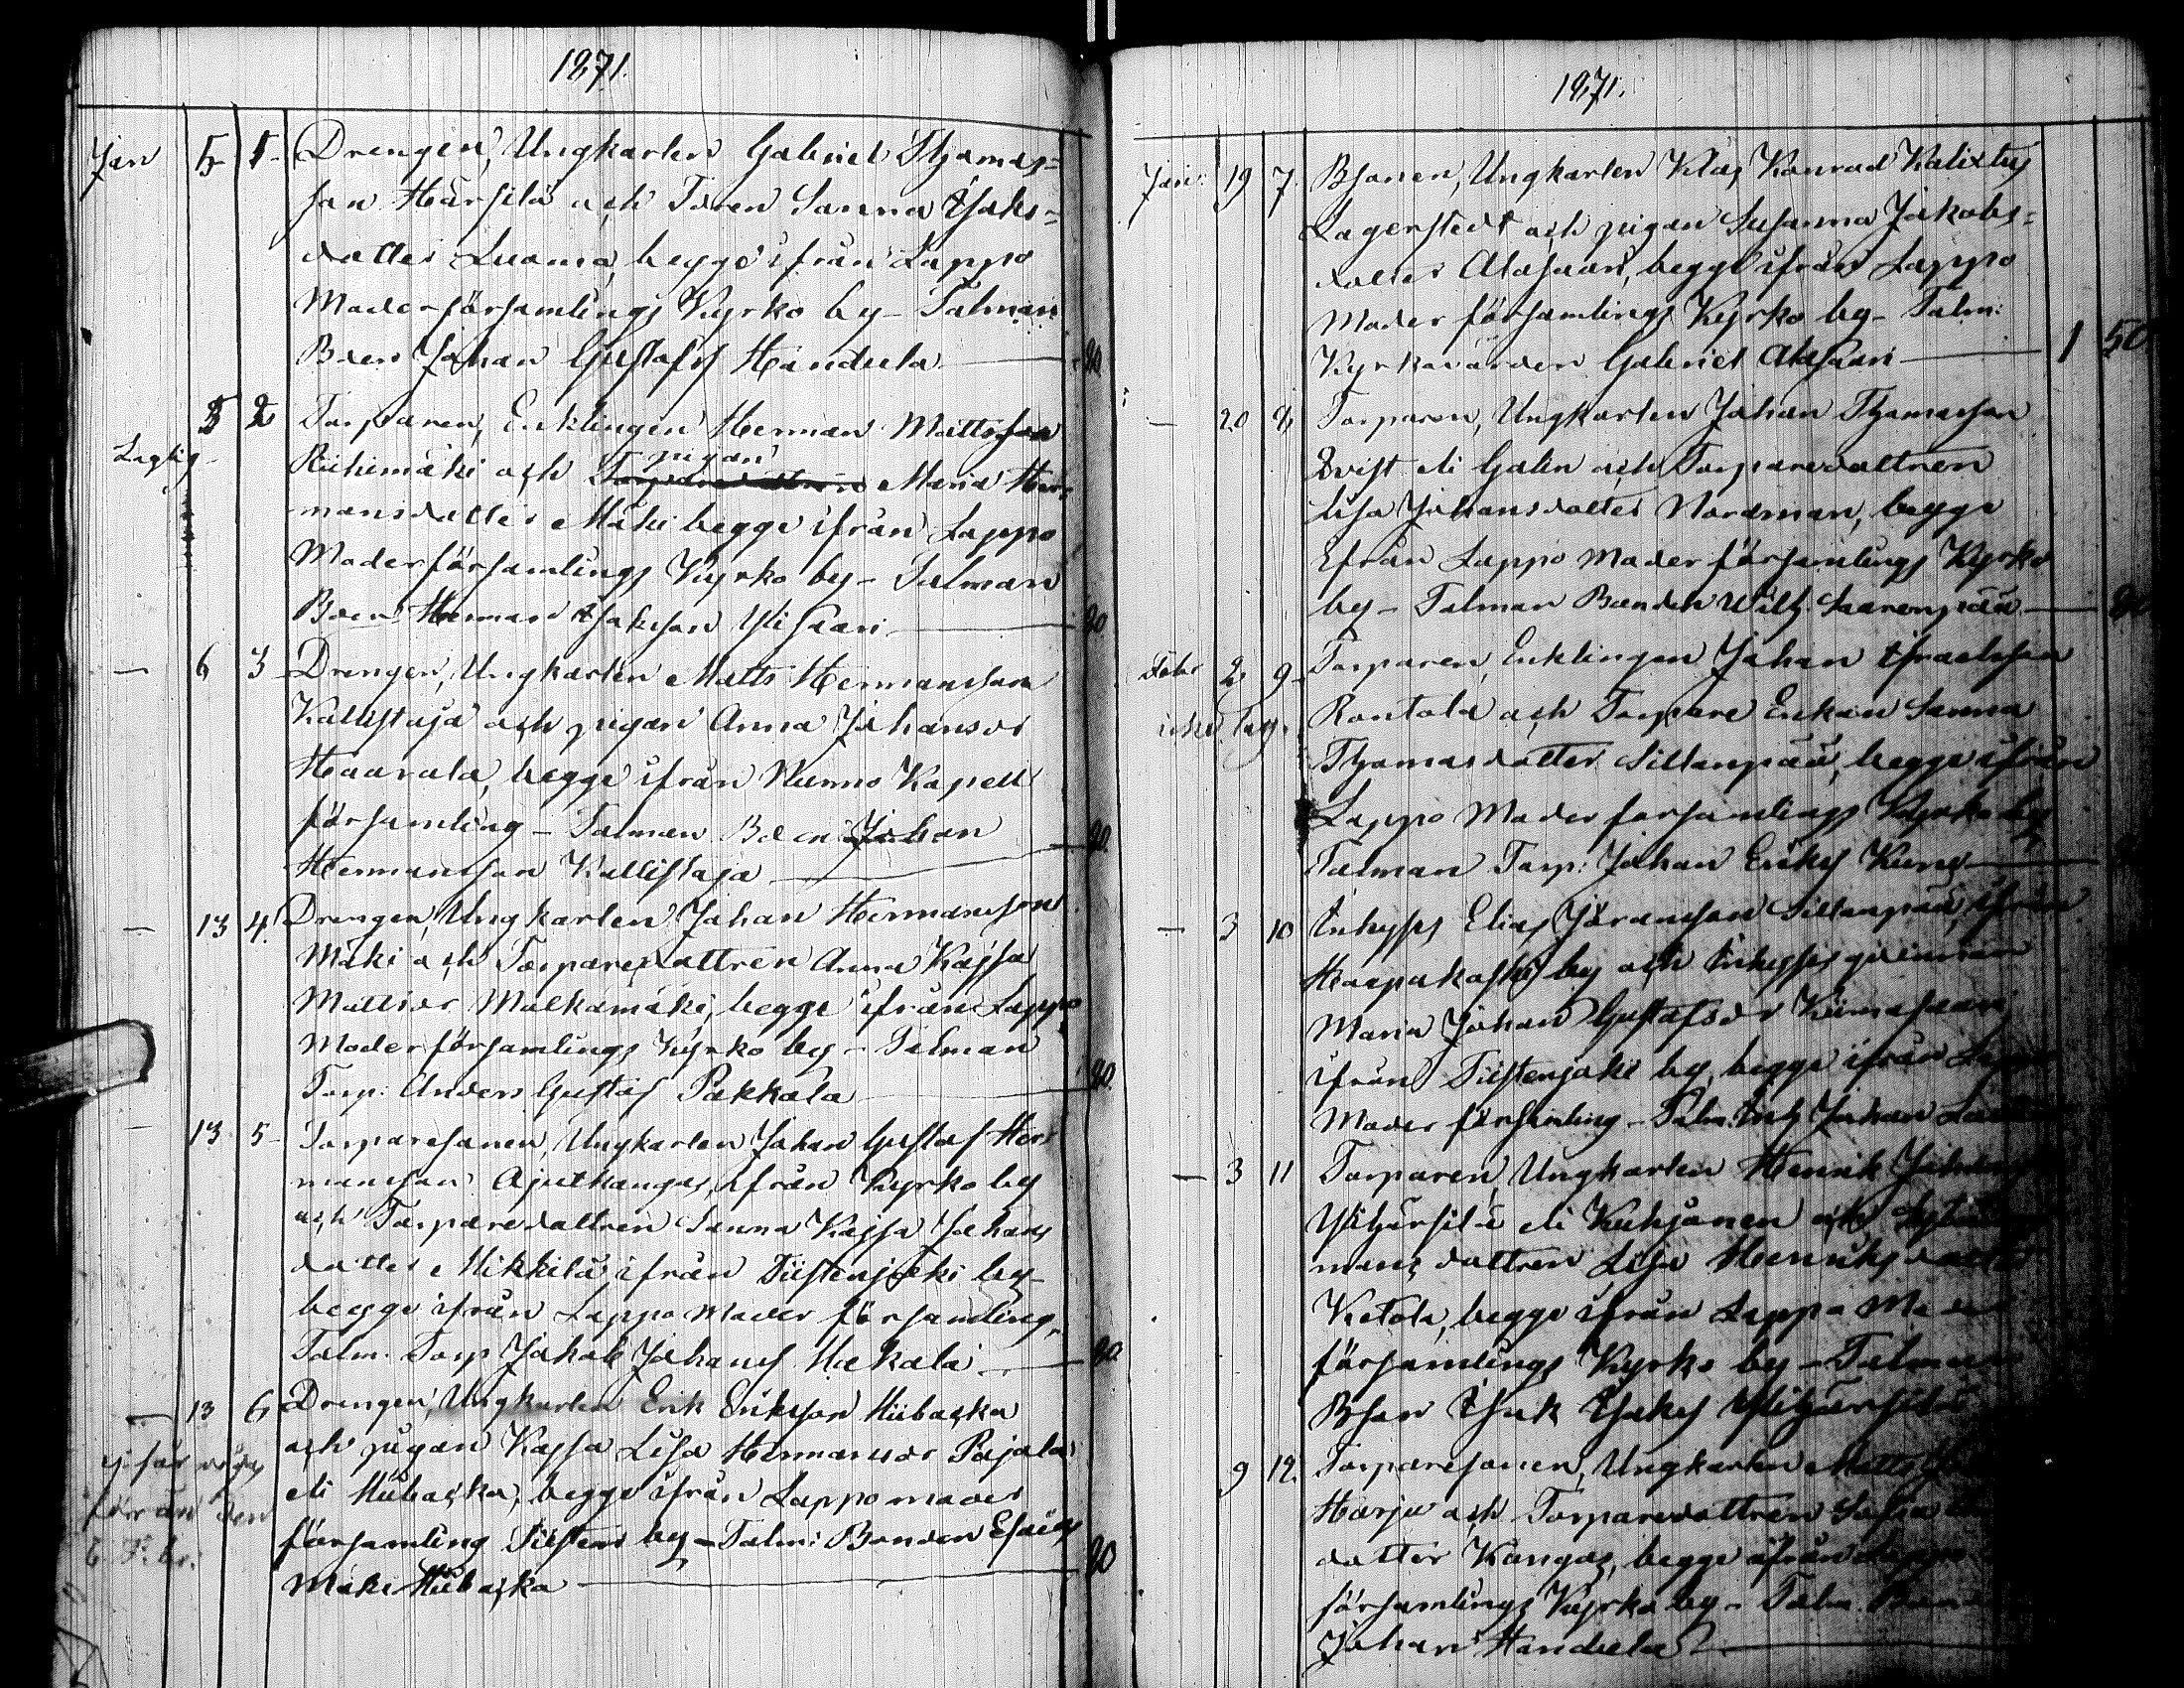 1871.
Jan 5 1 Drengen, Ungkarlen Gabriel Thomas=
son Härsilä och Toren Sanna Isaks=
dotter Luoma, begge ifrån Lappo
Moderförsamlings Kyrko by - Talman
Bden Johan Gustafss Handuela — 80
5 2 Torparen, Enklingen Herman Mattsson
Laglig - Riihimäki och pigan Maria Her=
mansdotter Mäki begge ifrån Lappo
Moderförsamlings Kyrko by - Talman
Bden Herman Isaksson Yli Saari — 80
— 6 3 Drengen, Ungkarlen Matts Hermansson
Kallistaja och pigan Anna Johansdr
Haavala, begge ifrån Nurmo Kapell
församling - Talman Bden Johan
Hermansson Kallistaja — 80.
— 13 4. Drengen, Ungkarlen Johan Hermansson
Mäki och Torparedottren Anna Kajsa
Mattsdr Malkamäki, begge ifrån Lappo
Moderförsamlings Kyrko by - Talman
Torp: Anders Gustaf Pakkala — 80.
— 13 5 - Torparesonen, Ungkarlen Johan Gustaf Her
mansson Ajutkangas, ifrån Kyrko by
och Torparedottren Sanna Kajsa Johans
dotter Mikkilä ifrån Tiistenjoki by -
begge ifrån Lappo Moder församling,
Talm. Torp Jakob Johanss Hakala — 80.
— 13 6 Drengen, Ungkarlen Erik Eriksson Hiibacka
och pigan Kajsa Lisa Hermansdr Pajala
ej får vigas
eli Hiibacka, begge ifrån Lappo moder
förr än den
församling Tiistens by - Talm: Bonden Esaias
6 Febr.
Mäki Hiibacka — 80
1871.
Jan: 19 7. Bsonen, Ungkarlen Klas Konrad Kalixtus
Lagerstedt och pigan Susanna Jakobs=
dotter Alasaari, begge ifrån Lappo
Moder församlings Kyrko by - Talm:
Kyrkovärden Gabriel Alasaari — 1 50
— 20 8, Torparen, Ungkarlen Johan Thomasson
Qvist eli Galin och Torparedottren
Lisa Johansdotter Nordman, begge
Ifrån Lappo Moder församlings Kyrko
by - Talman Bonden Wilh. Saarenpää — 80
Febr 2. 9 - Torparen, Enklingen Johan Israelsson
icke lag. Rontola och Torpare Enkan Sanna
Thomasdotter Sillanpää, begge ifrån
Lappo Moder församlings Kyrko by
Talman Torp: Johan Erikss —
— 3 10 Inhyses Elias Göransson Sillanpää, ifrån
Haapakoski by och Inhyses qvinnan
Maria Johan Gustafsdr Kiimasaari,
ifrån Tiistenjoki by, begge ifrån Lappo
Moder församling - Talm: Inh Johan
— 3 11 Torparen, Ungkarlen Henrik
Ylihärsilä eli Kuhjonen och
mans dottren Lisa Henriks dotter
Ketola, begge ifrån Lappo Moder
församlings Kyrko by - Talman
Bson Isak Isakss Ylihärsilä
9 12. Torparesonen, Ungkarlen Matts
Harju och Torparedottren Sofia
dotter Kangas, begge ifrån Lappo
församlings Kyrko by - Talm.
Johan Handuela —